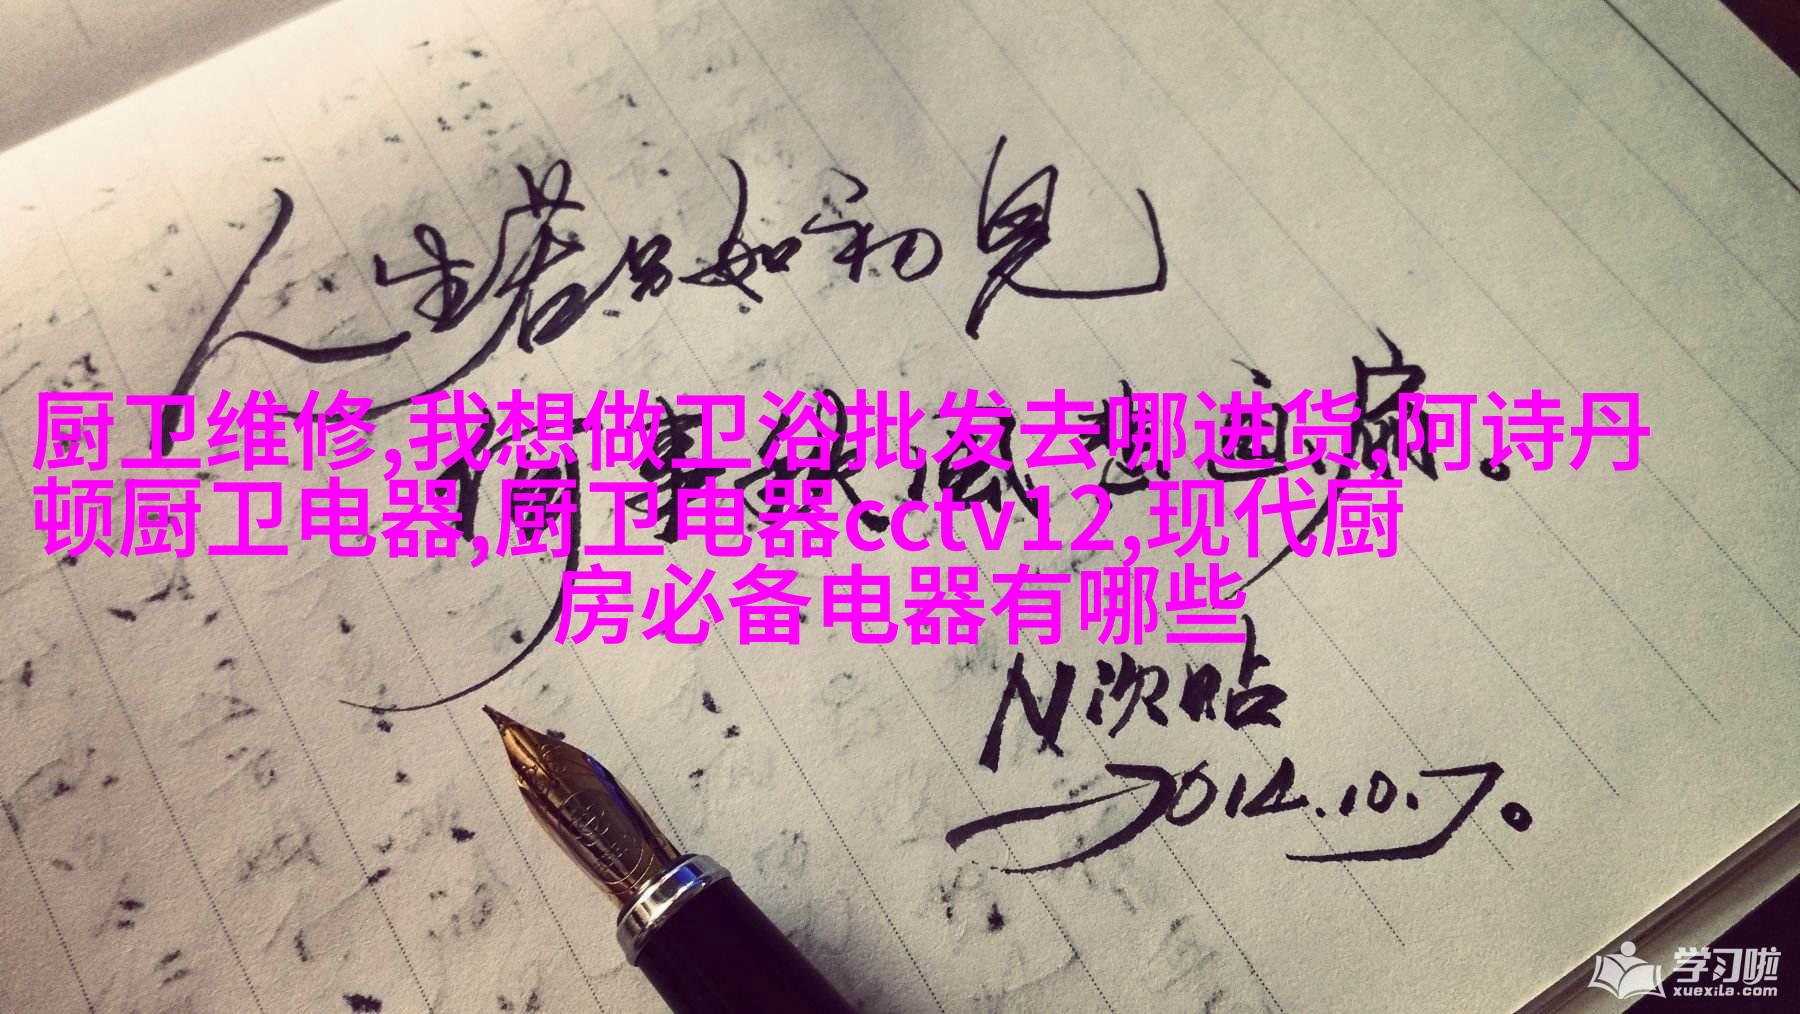 人生若只如初见
何事秋风悲画扇。
厨卫维修,我想做卫浴批发去哪进货,阿诗丹
顿厨卫电器,厨卫电器cctv12,现代厨
房必备电器有哪些
N次贴
2014.10.7。
学习啦
xuexila.com